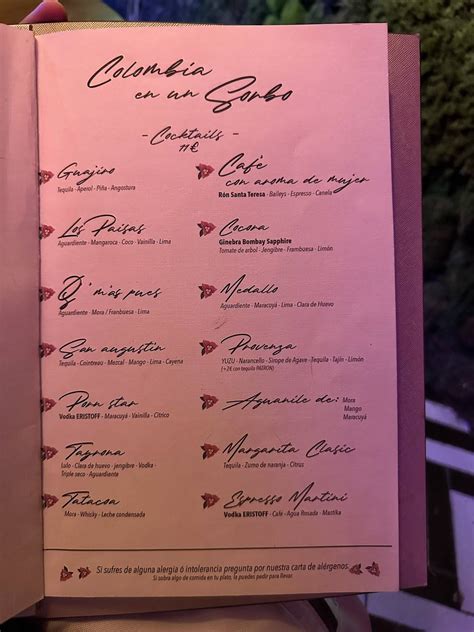 Colombia
en un Sorbo
- Cocktails -
11€
Guajiro
Tequila - Aperol - Piña - Angostura
Los Paisas
Aguardiente - Mangaroca - Coco - Vainilla - Lima
Q' más pues
Aguardiente - Mora / Franbuesa - Lima
San augustin
Tequila - Cointreau - Mezcal - Mango - Lima - Cayena
Porn star
Vodka ERISTOFF - Maracuyá - Vainilla - Citrico
Tayrona
Lulo - Clara de huevo - jengibre - Vodka -
Triple seco - Aguardiente
Tatacoa
Mora - Whisky - Leche condensada
Café
con aroma de mujer
Rón Santa Teresa - Baileys - Espresso - Canela
Cocora
Ginebra Bombay Sapphire
Tomate de arbol - Jengibre - Frambuesa - Limón
Medallo
Aguardiente - Maracuyá - Lima - Clara de Huevo
Provenza
YUZU - Narancello - Sirope de Agave - Tequila - Tajín - Limón
(+2€ con tequila PATRON)
Aguanile de: Mora
Mango
Maracuyá
Margarita Clasic
Tequila - Zumo de naranja - Citrus
Espresso Martini
Vodka ERISTOFF - Café - Agua Rosada - Mastika
Si sufres de alguna alergia ó intolerancia pregunta por nuestra carta de alérgenos.
Si sobra algo de comida en tu plato, la puedes pedir para llevar.